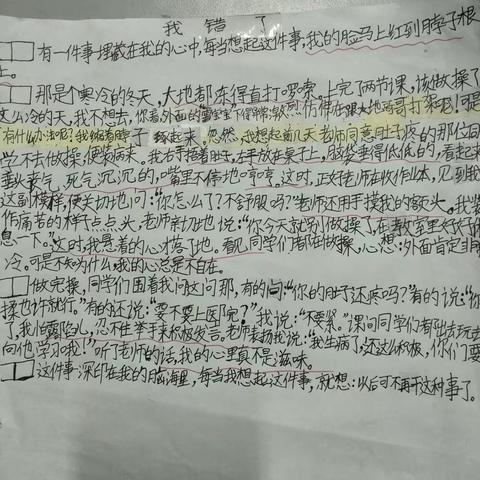 我 错 了
有一件事埋藏在我的心中,每当想起这件事,我的脸马上红到脖子根
上。
那是个寒冷的冬天,大地都冻得直打哆嗦。上完两节课,该做操了
这么冷的天,我不想去,你看外面的雪宝宝下得异常激烈,仿佛在跟大地妈哥打架呢!可是
有什么办法呢?我缩着脖子 起来。忽然,我想起前几天老师同意肚子疼的那位同
学不去做操,便装病来。我右手捂着肚,左手放在桌子上,脑袋垂得低低的,看起来
垂头丧气,死气沉沉的,嘴里不停地哼哼。这时,正好老师在收作业本,见到我
这副模样,便关切地问:“你怎么了?不舒服吗?”老师还用手摸我的额头。我装
作痛苦的样子点点头,老师亲切地说:“你今天就别做操了,在教室里好好休
息一下。”这时,我悬着的心才落了地。看见同学们都在做操,心想:外面肯定非
冷。可是不知为什么,我的心总是不自在。
做完操,同学们围着我问这问那,有的问:“你的肚子还疼吗?”有的说:“你
揉也许就行。”有的还说:“要不要上医院?”我说:“不要紧。”课间同学们都出去玩去
了,我怕露陷儿,忍不住举手来积极发言。老师表扬我说:“我生病了,还这么积极,你们要
向他学习哦!”听了老师的话,我的心里真不是滋味。
这件事深印在我的脑海里,每当我想起这件事,就想:以后可不再干这种事了。